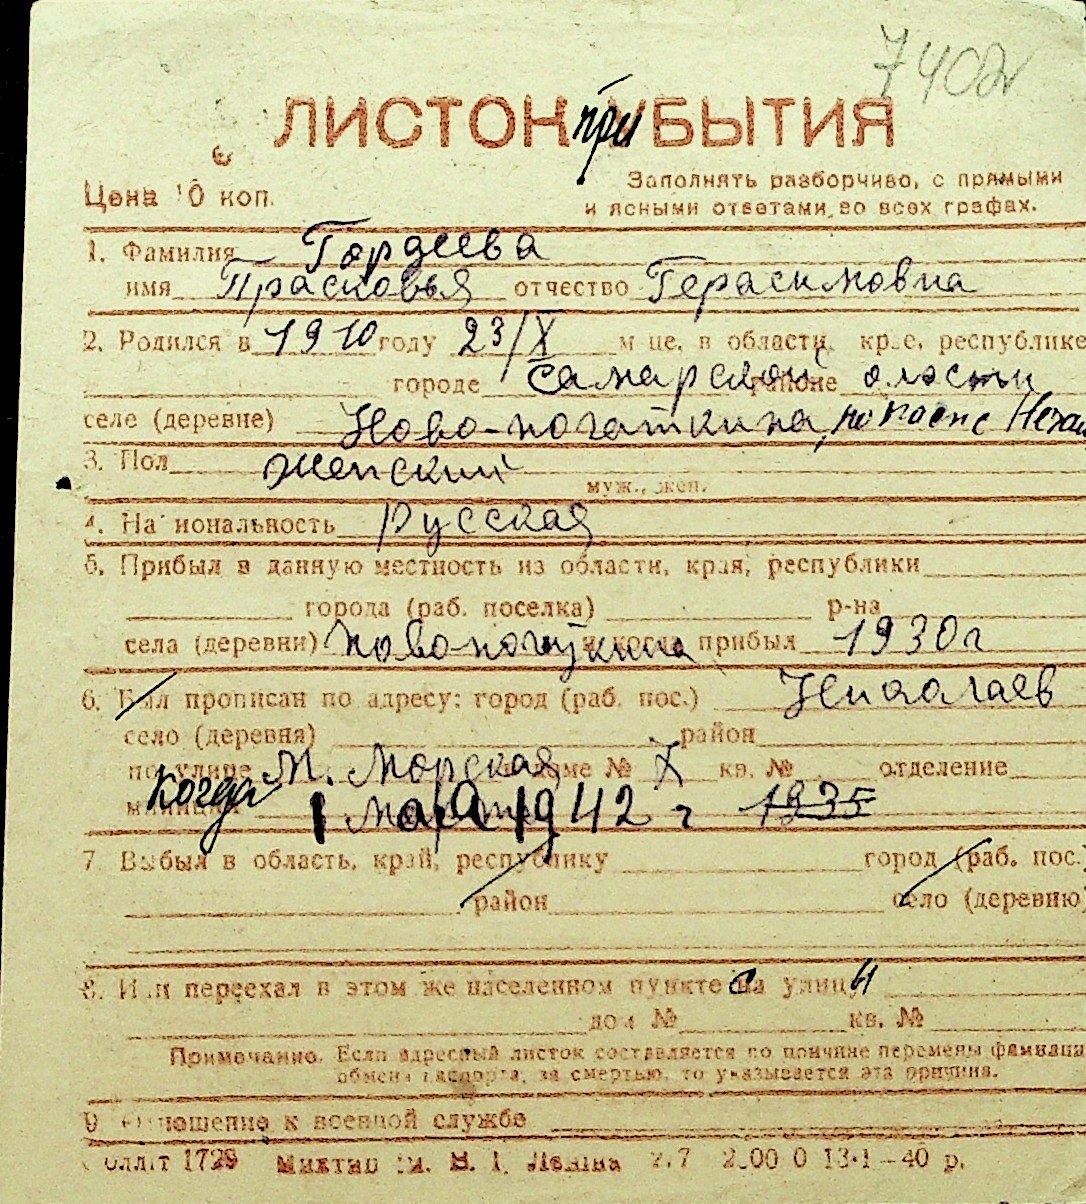 7402
ЛИСТОК при УБЫТИЯ
Цена 10 коп.
Заполнять разборчиво, с прямыми
и ясными ответами во всех графах.
1. Фамилия Гордеева
имя Прасковья отчество Герасимовна
2. Родился в 1910 году 23/X м це, в области, крае, республике
городе Самарской районе оласти
селе (деревне) Ново-погаткина,
3. Пол Женский
муж., жен.
4. Национальность Русская
5. Прибыл в данную местность из области, края, республики
города (раб. поселка) р-на
села (деревни) и когда прибыл 1930 г
6. Был прописан по адресу: город (раб. пос.) Николаев
село (деревня) район
по улице М. Морская доме № X кв. № отделение
милиции Когда 1 марта 1942 г 1935
7. Выбыл в область, край, республику город (раб. пос.)
район село (деревню)
8. Или переехал в этом же населенном пункте с на улицы
дом № кв. №
Примечание. Если адресный листок составляется по причине перемены фамилии
обмена паспорта, за смертью, то указывается эта причина.
9 Отношение к военной службе
1729 В. І. Леніна 13·1—40 р.